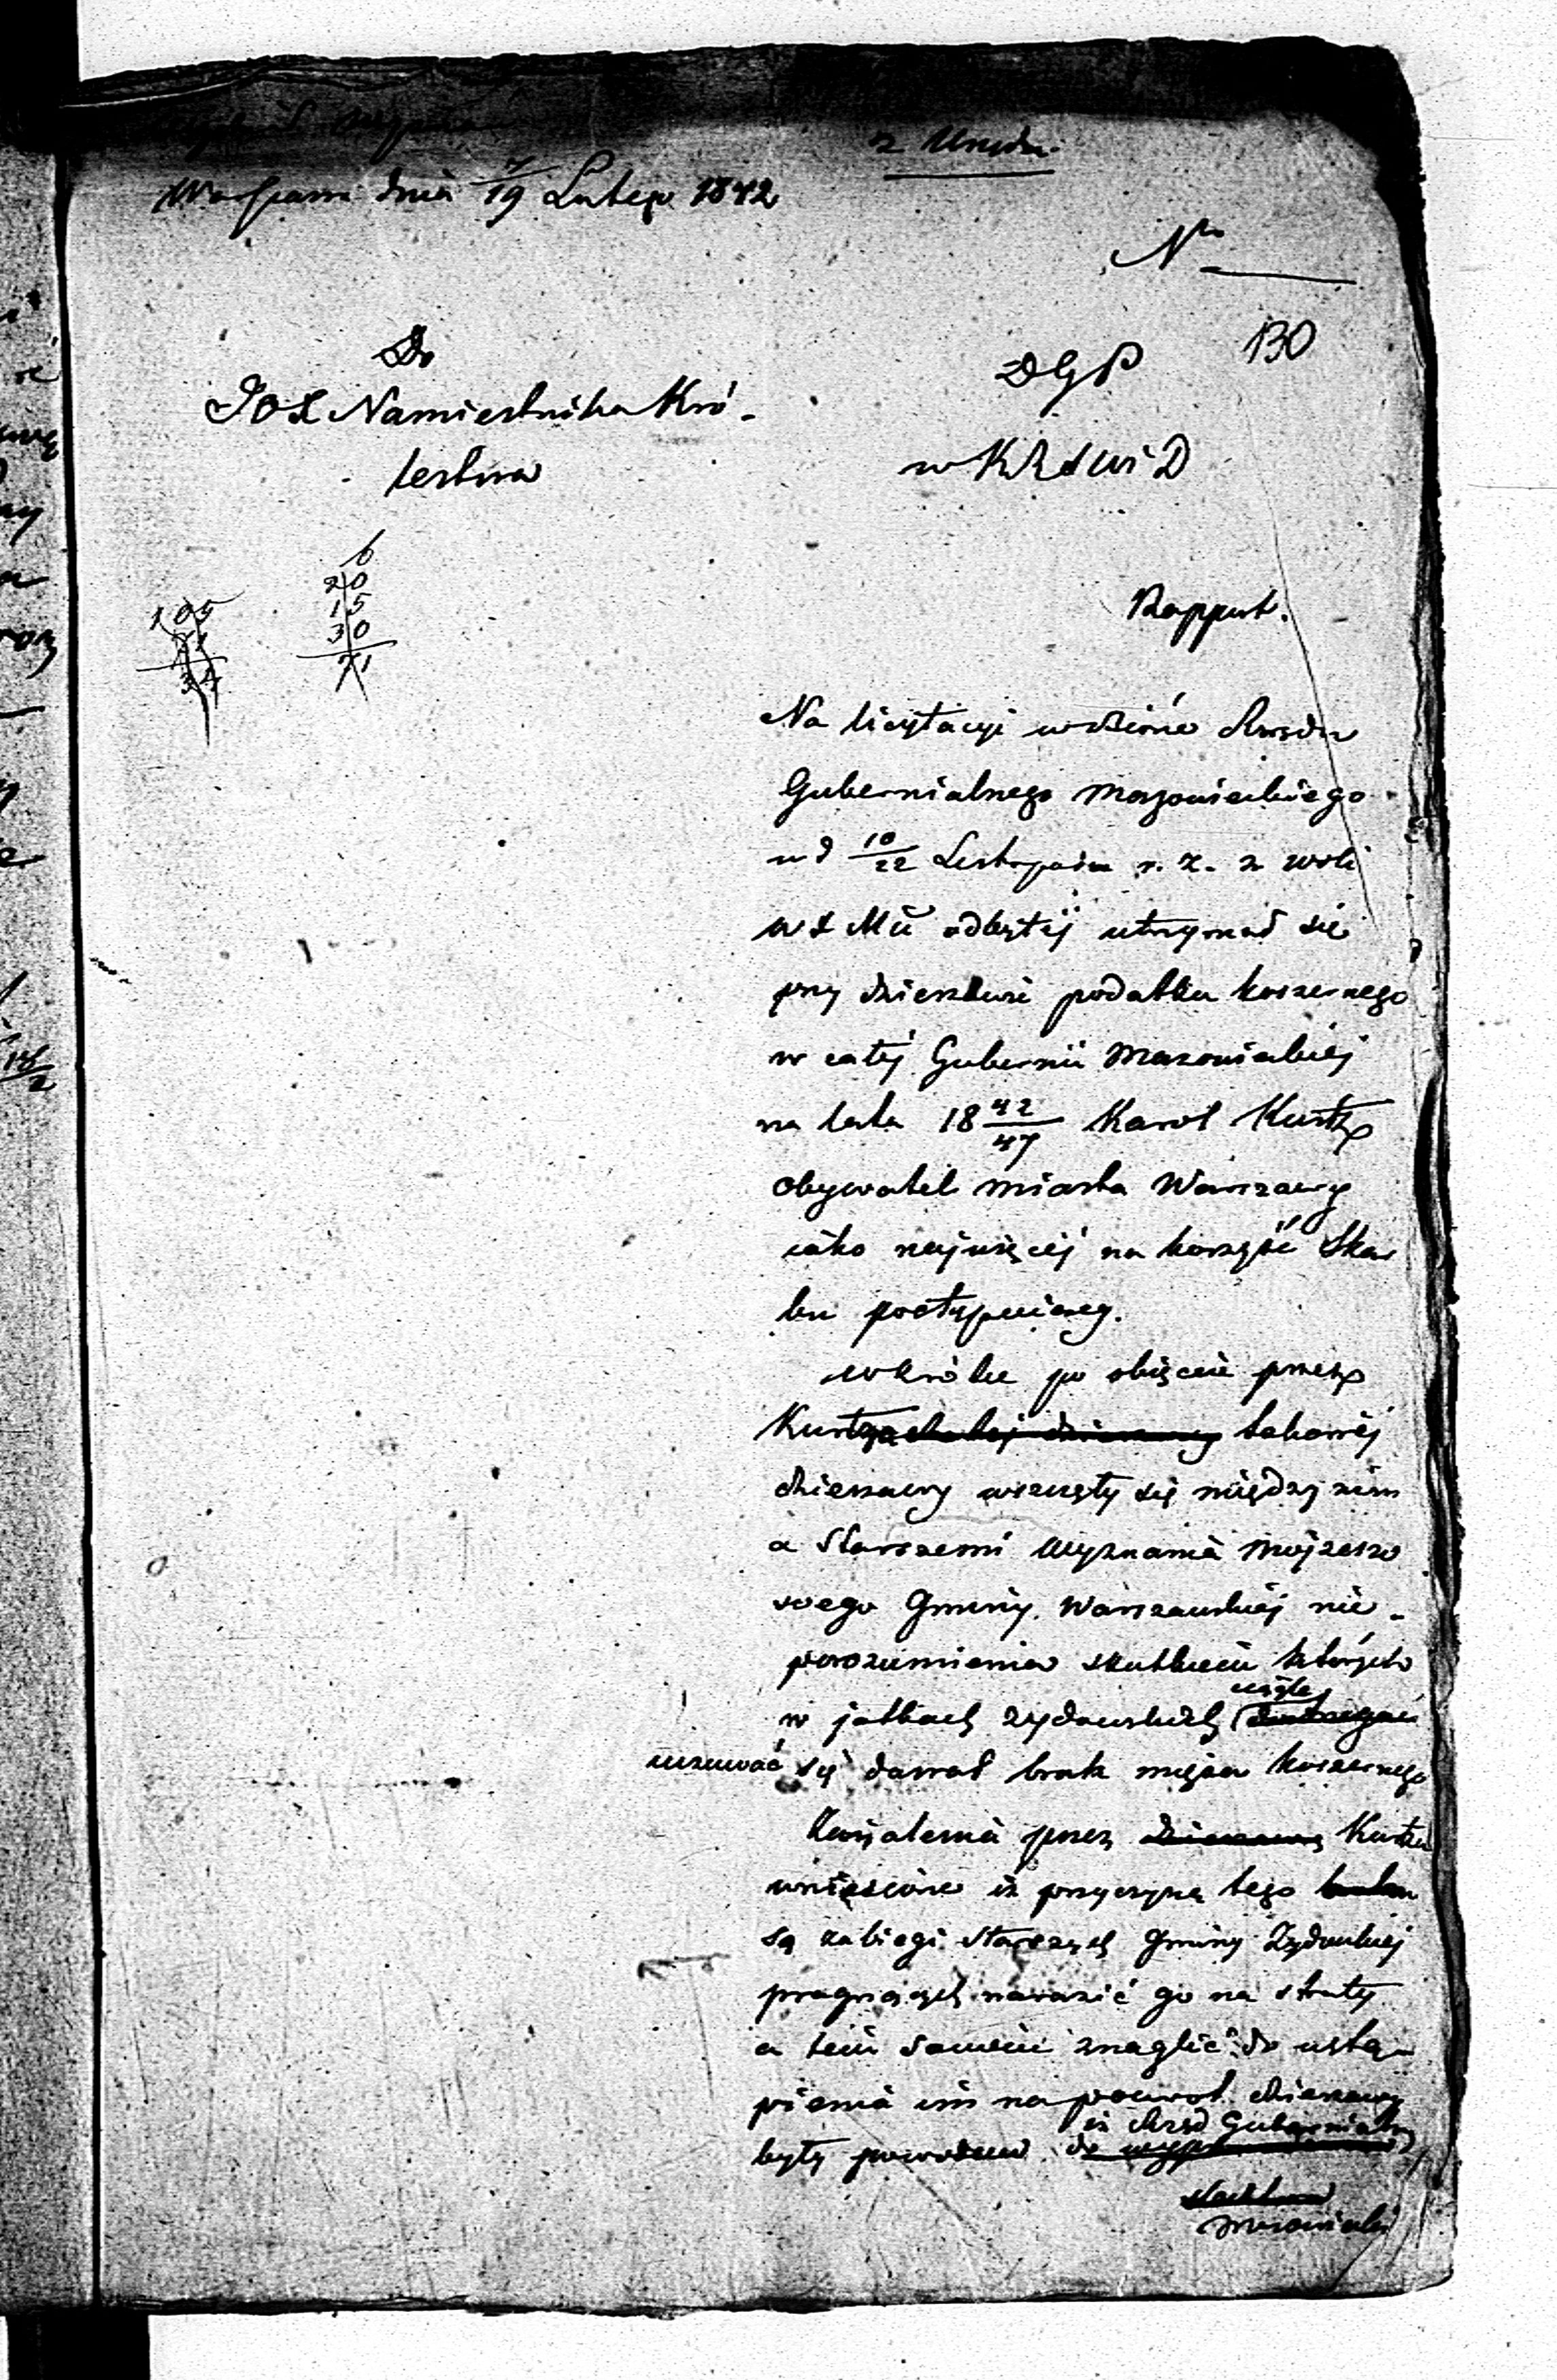 z Urzędu.
Warszawa dnia 7/19 Lutego 1842
No
130
Do
JOX Namiestnika Kró-
lestwa
DGP
w KRSWiD
6
20
15
30
71
105
71
34
Rapport.
Na licytacyi w biórze Rządu
Gubernialnego Mazowieckiego
w d 10/22 Listopada r. z. z woli
odbytéj utrzymał się
przy dzierżawie podatku koszernego
w całéj Gubernii Mazowieckiéj
na lata 18 42/47 Karol Kurtz
obywatel miasta Warszawy
iako najwięcéj na korzyść Skar
bu postępuiący.
Wkrótce po obięciu przez
Kurtza takowéj
dzierżawy wszczęły się między nim
a Starszemi Wyznania Mojżeszo
wego Gminy Warszawskiéj nie-
porozumienia skutkiem których
w jatkach żydowskich ciągle
uczuwać się dawał brak mięsa koszernego
Zażalenia przez Kurtza
wniesione iż przyczyną tego
są zabiegi Starszych Gminy Żydowskiéj
pragnących narazić go na straty
a tém samém znaglić do ustą-
pienia im na powrót dzierżawy
były powodem iż Rząd Gubernialny
Mazowiecki